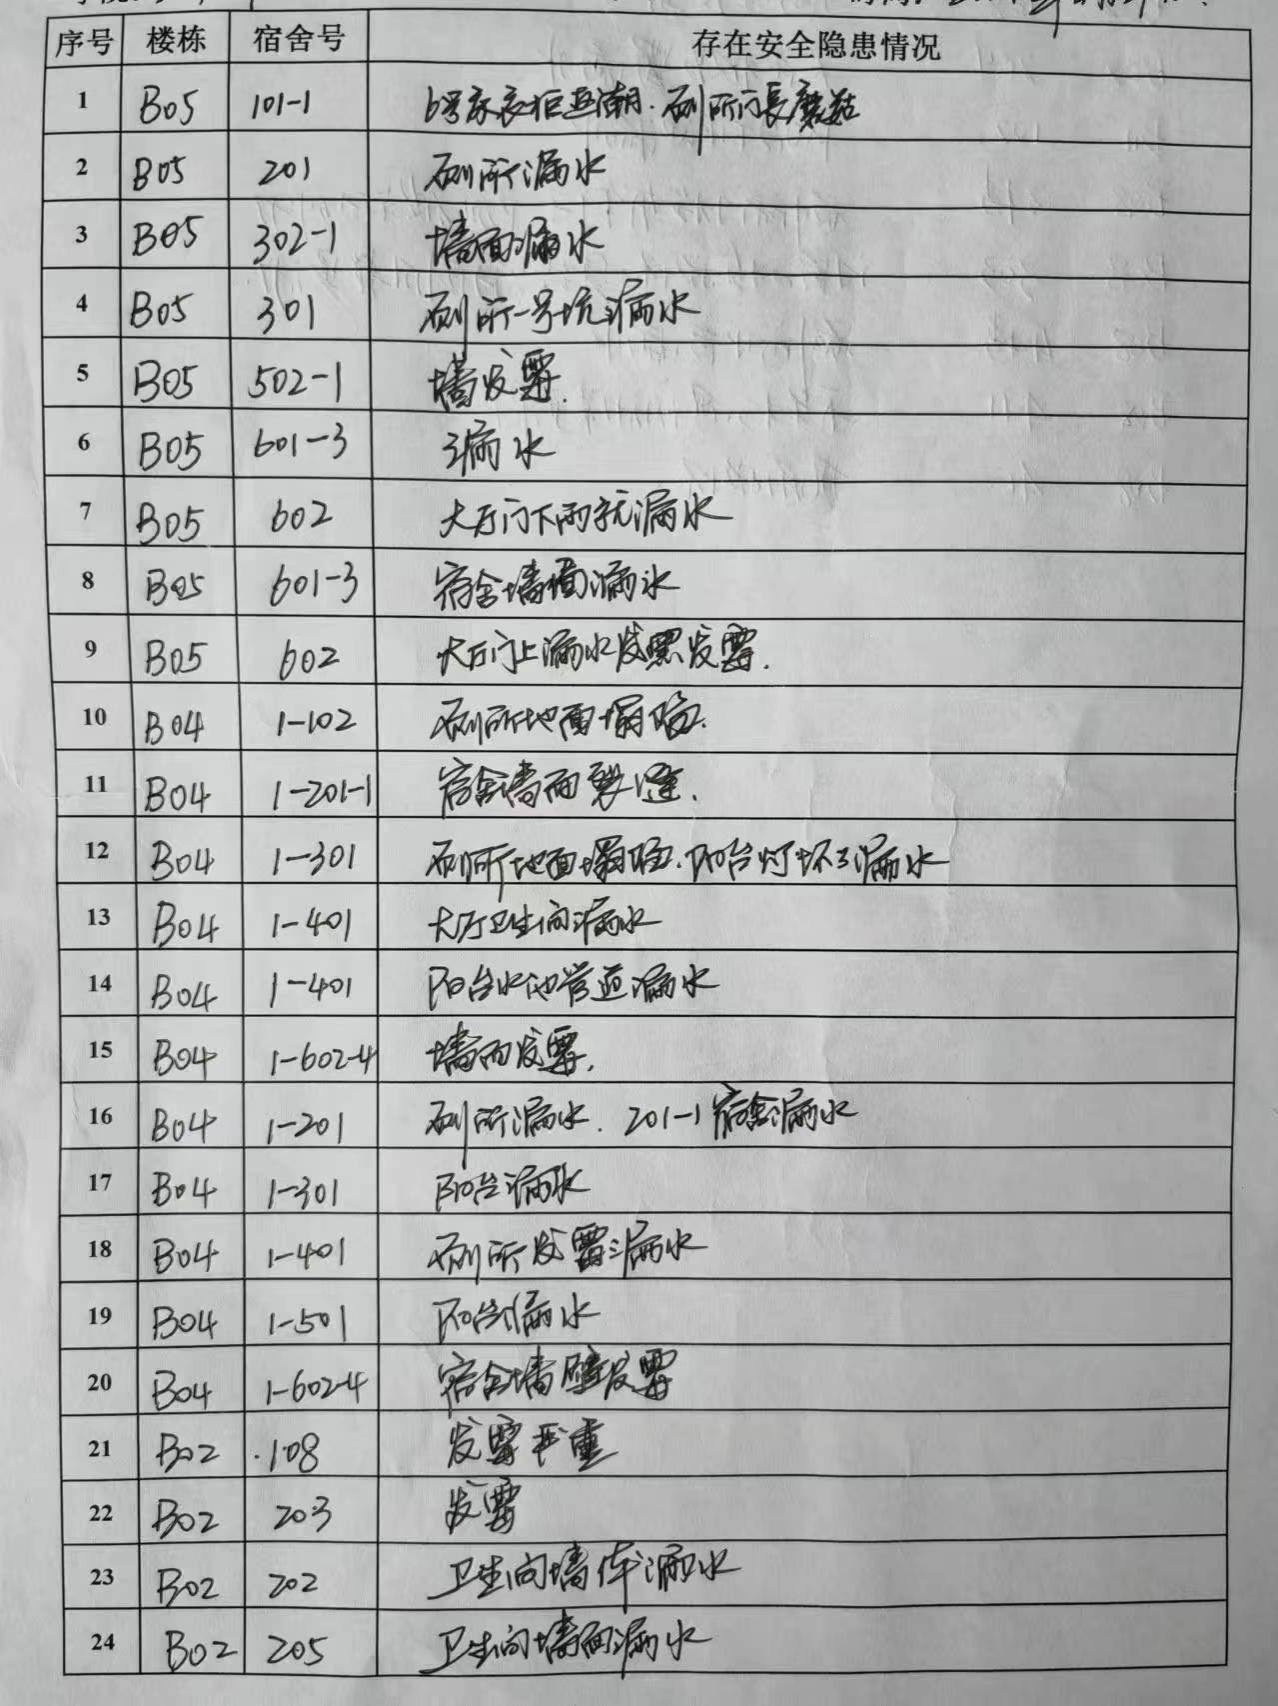 序号 楼栋 宿舍号 存在安全隐患情况
1 B05 101-1 6号床衣柜返潮.厕所门長蘑菇
2 B05 201 厕所漏水
3 B05 302-1 墙面漏水
4 B05 301 厕所一号坑漏水
5 B05 502-1 墙发霉.
6 B05 601-3 漏水
7 B05 602 大厅门下雨就漏水
8 B05 601-3 宿舍墙面漏水
9 B05 602 大厅门上漏水发黑发霉.
10 B04 1-102 厕所地面塌陷.
11 B04 1-201-1 宿舍墙面裂缝.
12 B04 1-301 厕所地面塌陷.阳台灯坏了漏水
13 B04 1-401 大厅卫生间漏水
14 B04 1-401 阳台水池管道漏水
15 B04 1-602-4 墙面发霉.
16 B04 1-201 厕所漏水.201-1宿舍漏水
17 B04 1-301 阳台漏水
18 B04 1-401 厕所发霉漏水
19 B04 1-501 阳台漏水
20 B04 1-602-4 宿舍墙壁发霉
21 B02 108 发霉严重
22 B02 203 发霉
23 B02 202 卫生间墙体漏水
24 B02 205 卫生间墙面漏水